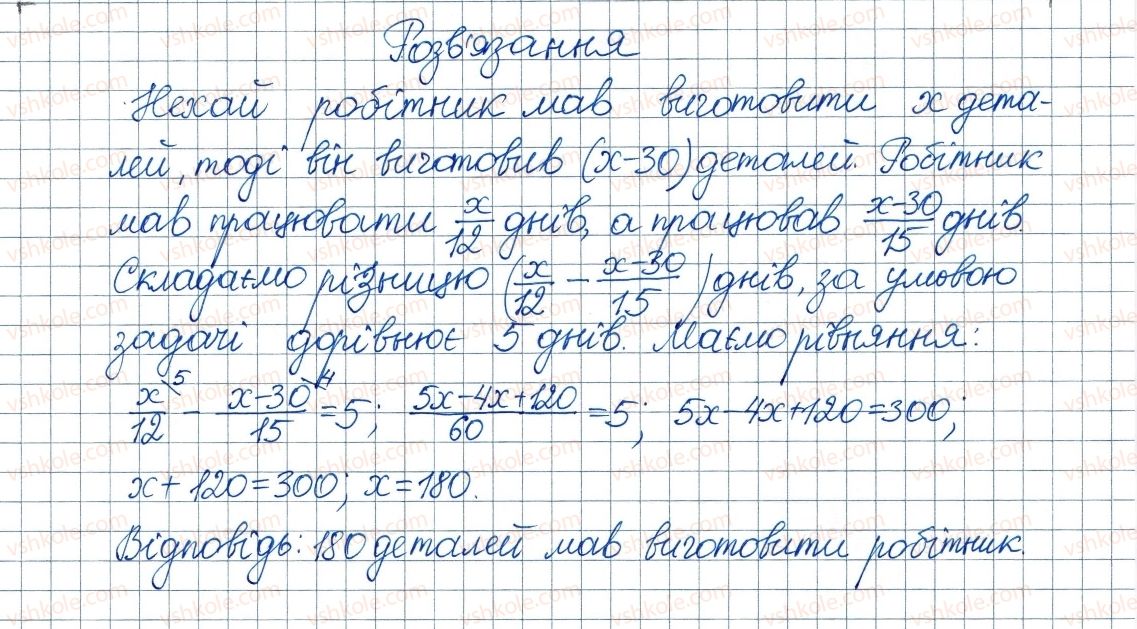 Розв'язання
Нехай робітник мав виготовити x дета-
лей, тоді він виготовив (x-30) деталей. Робітник
мав працювати x/12 днів, а працював x-30/15 днів.
Складаємо різницю (x/12 - x-30/15) днів, за умовою
задачі дорівнює 5 днів. Маємо рівняння:
x\5/12 - x-30\4/15 = 5; 5x-4x+120/60 = 5; 5x-4x+120=300;
x+120=300; x=180.
Відповідь: 180 деталей мав виготовити робітник.
vshkole.com